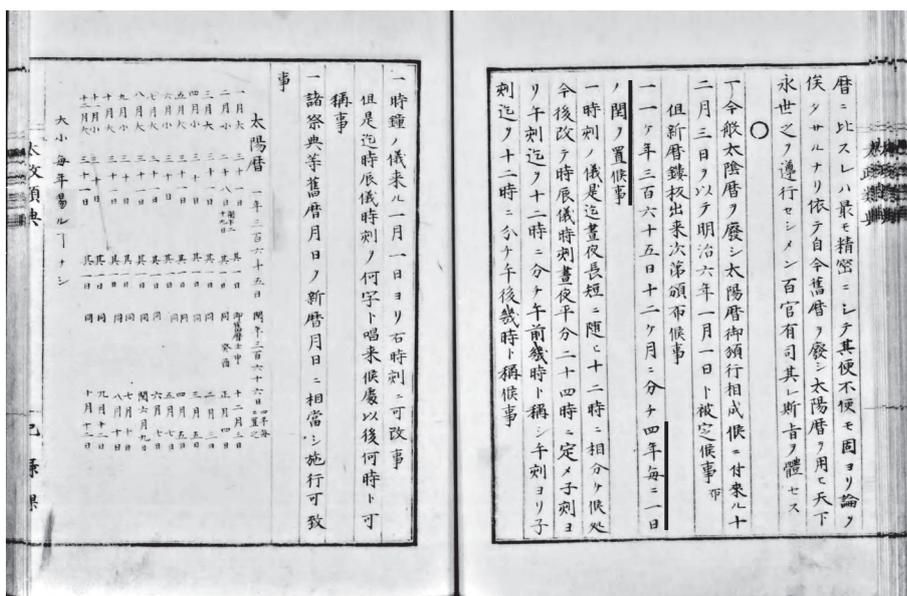 暦ニ比スレハ最モ精密ニシテ其便不便モ固ヨリ論ヲ
俟タサルナリ依テ自今舊暦ヲ廢シ太陽暦ヲ用ヒ天下
永世之ヲ遵行セシメン百官有司其レ斯旨ヲ體セス
○
一今般太陰暦ヲ廢シ太陽暦御頒行相成候ニ付来ル十
二月三日ヲ以テ明治六年一月一日ト被定候事 布
但新暦鏤板出来次第頒布候事
一一ヶ年三百六十五日十二ヶ月ニ分チ四年毎ニ一日
ノ閏ヲ置候事
一時刻ノ儀是迄晝夜長短ニ随ヒ十二時ニ相分ケ候処
今後改テ時辰儀時刻晝夜平分二十四時ニ定メ子刻ヨ
リ午刻迄ヲ十二時ニ分チ午前幾時ト稱シ午刻ヨリ子
刻迄ヲ十二時ニ分チ午後幾時ト稱候事
一時鐘ノ儀来ル一月一日ヨリ右時刻ニ可改事
但是迄時辰儀時刻ヲ何字ト唱来候處以後何時ト可
稱事
一諸祭典等舊暦月日ヲ新暦月日ニ相當シ施行可致
事
太陽暦 一年三百六十五日 閏年三百六十六日 四年毎ニ置之
一月大 三十一日 其一日 即舊暦壬申 十二月三日
二月小 二十八日 閏年二十九日 其一日 同 癸酉 正月四日
三月大 三十一日 其一日 同 二月三日
四月小 三十日 其一日 同 三月五日
五月大 三十一日 其一日 同 四月五日
六月小 三十日 其一日 同 五月七日
七月大 三十一日 其一日 同 六月七日
八月大 三十一日 其一日 同 閏六月九日
九月小 三十日 其一日 同 七月十日
十月大 三十一日 其一日 同 八月十日
十一月小 三十日 其一日 同 九月十二日
十二月大 三十一日 其一日 同 十月十二日
大小毎年易ルヿナシ
太政類典